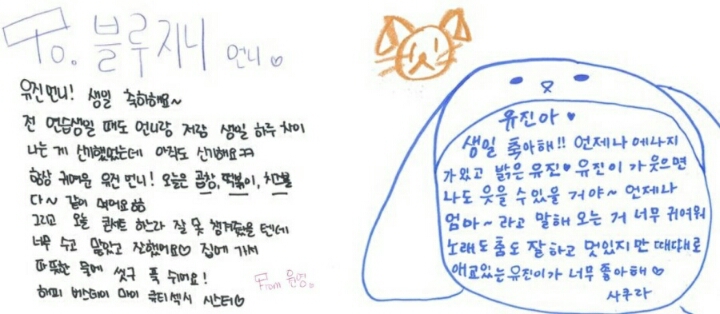 To. 블루지니 언니♡
유진언니! 생일 축하해요~
전 연습생일 때도 언니랑 저랑 생일 하루 차이
나는 게 신기했었는데 아직도 신기해요ㅋㅋ
항상 귀여운 유진 언니! 오늘은 곱창, 떡볶이,
다~ 같이 먹어요
그리고 오늘 콘서트 하느라 잘 못 챙겨줬을 텐데
너무 수고 많았고 잘했어요♡ 집에 가서
따뜻한 물에 씻구 푹 쉬어요!
해피 버스데이 마이 큐티섹시 시스터♡
From 원영.
유진아 ♥
생일 축하해!! 언제나 에너지
가있고 밝은 유진♥ 유진이 가 웃으면
나도 웃을 수 있을 거야~ 언제나
엄마~ 라고 말해 오는 거 너무 귀여워
노래도 춤도 잘 하고 멋있지만 때때로
애교있는 유진이가 너무 좋아해 ♡
사쿠라